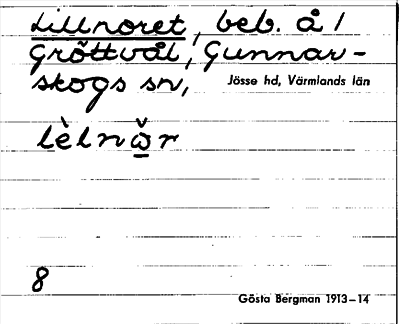 Lillnoret, beb. å 1
Gröttvål, Gunnar-
skogs sn, Jösse hd, Värmlands län
lèlnω̲̆r
8
Gösta Bergman 1913–14